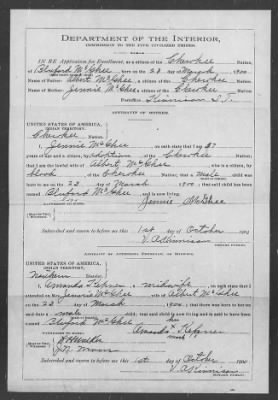 DEPARTMENT OF THE INTERIOR,
COMMISSION TO THE FIVE CIVILIZED TRIBES.
IN RE Application for Enrollment, as a citizen of the Cherokee Nation,
of Bluford McGhee born on the 22 day of March 1900
Name of Father: Albert McGhee a citizen of the Cherokee Nation.
Name of Mother: Jennie McGhee a citizen of the Cherokee Nation.
Postoffice Kinnison I.T.
AFFIDAVIT OF MOTHER.
UNITED STATES OF AMERICA,
INDIAN TERRITORY,
Cherokee Nation.
I, Jennie McGhee on oath state that I am
years of age and a citizen, by adoption of the Cherokee Nation;
that I am the lawful wife of Albert McGhee who is a citizen, by
blood of the Cherokee Nation; that a male child
was born to me on 22 day of March 1900; that said child has been
named Bluford McGhee and is now living.
Jennie McGhee
Subscribed and sworn to before me this 1st day of October
V. A. Kinnison
UNITED STATES OF AMERICA,
INDIAN TERRITORY,
Northern District.
I, Amanda Kepner a midwife on oath state that I
attended on Mrs. Jennie McGhee wife of Albert McGhee
on the 22 day of March 1900; that there was born to her on said
date a male child; that said child is now living and is said to have been
named Bluford McGhee
her
Amanda x Kepner
mark
Subscribed and sworn to before me this 1st day of October
V. A. Kinnison